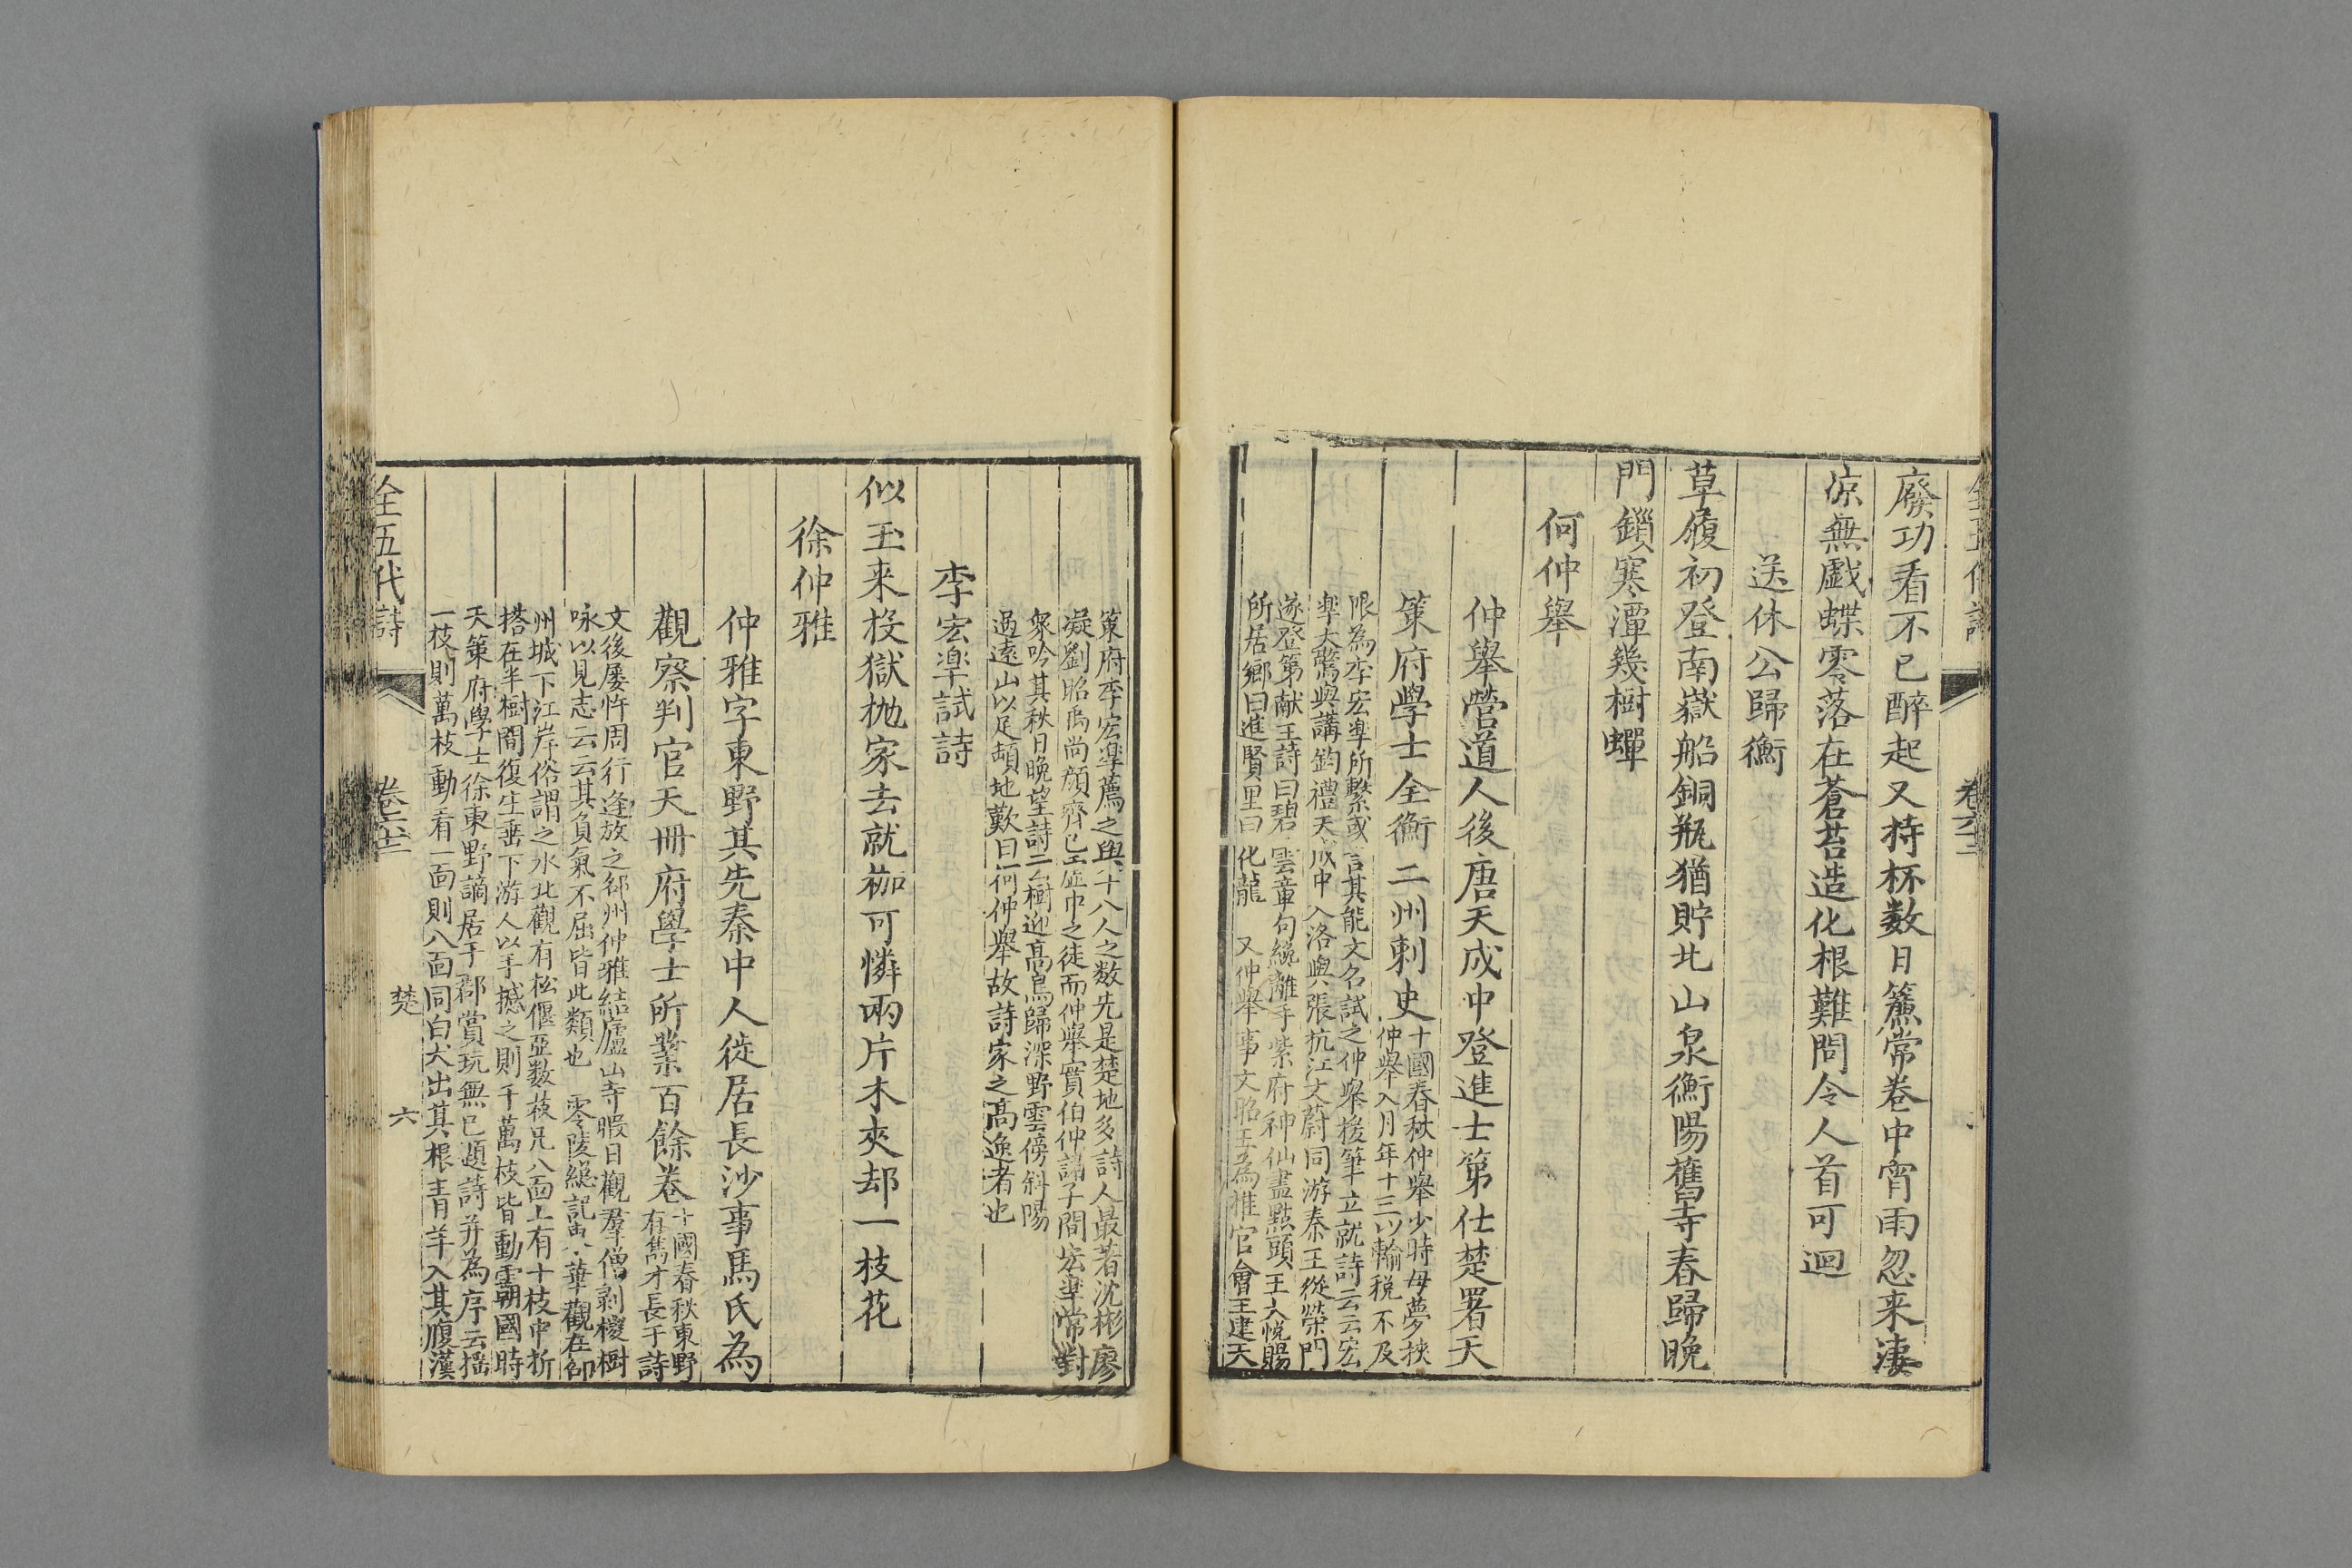 廢功看不已醉起又持杯数日簾常卷中宵雨忽来凄
凉無戱蝶零落在蒼苔造化根難問令人首可迴
送休公歸衡
草履初登南嶽船銅瓶猶貯北山泉衡陽舊寺春歸晚
門鎻寒潭幾樹蟬
何仲舉
仲舉營道人後唐天成中登進士第仕楚署天
策府學士全衡二州刺史
十國春秋仲舉少時母夢挾
仲舉入月年十三以輸税不及
限為李宏臯所繫或言其能文名試之仲舉援筆立就詩云云宏
臯大驚與講鈞禮天成中入洛與張抗江文蔚同游秦王從榮門
遂登第献王詩曰碧雲章句纔離手紫府神仙盡點頭王大悅賜
所居鄉曰進賢里曰化龍 又仲舉事文昭王為推官會王建天
策府李宏臯薦之與十八人之数先是楚地多詩人最著沈彬廖
凝劉昭禹尚顔齊己虛中之徒而仲舉實伯仲諸子間宏臯常對
衆吟其秋日晚望詩云樹迎髙鳥歸深野雲傍斜陽
過遠山以足頓地歎曰何仲舉故詩家之髙逸者也
李宏臯試詩
似玉来投獄抛家去就枷可憐兩片木夾却一枝花
徐仲雅
仲雅字東野其先秦中人徙居長沙事馬氏為
觀察判官天冊府學士所業百餘卷
十國春秋東野
有雋才長于詩
文後屡忤周行逢放之邵州仲雅結廬山寺暇日觀羣僧剥椶樹
咏以見志云云其負氣不屈皆此類也 零陵緫記中華觀在邵
州城下江岸俗謂之水北觀有松偃亞数枝凡八面上有十枝中折
搭在半樹間復生垂下游人以手撼之則千萬枝皆動霸國時
天策府學士徐東野謫居于郡賞玩無已題詩并為序云揺
一枝則萬枝動看一面則八面同白犬出其根青羊入其腹漢
全五代詩
卷六十二
楚
六